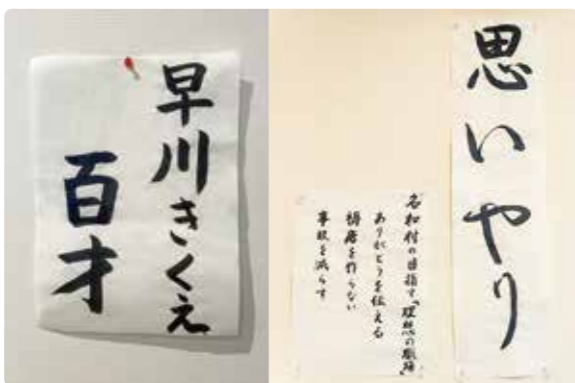 早川きくえ
百才
思いやり
名和村の目指す「理想の職場」
ありがとうを伝える
褥瘡を作らない
事故を減らす